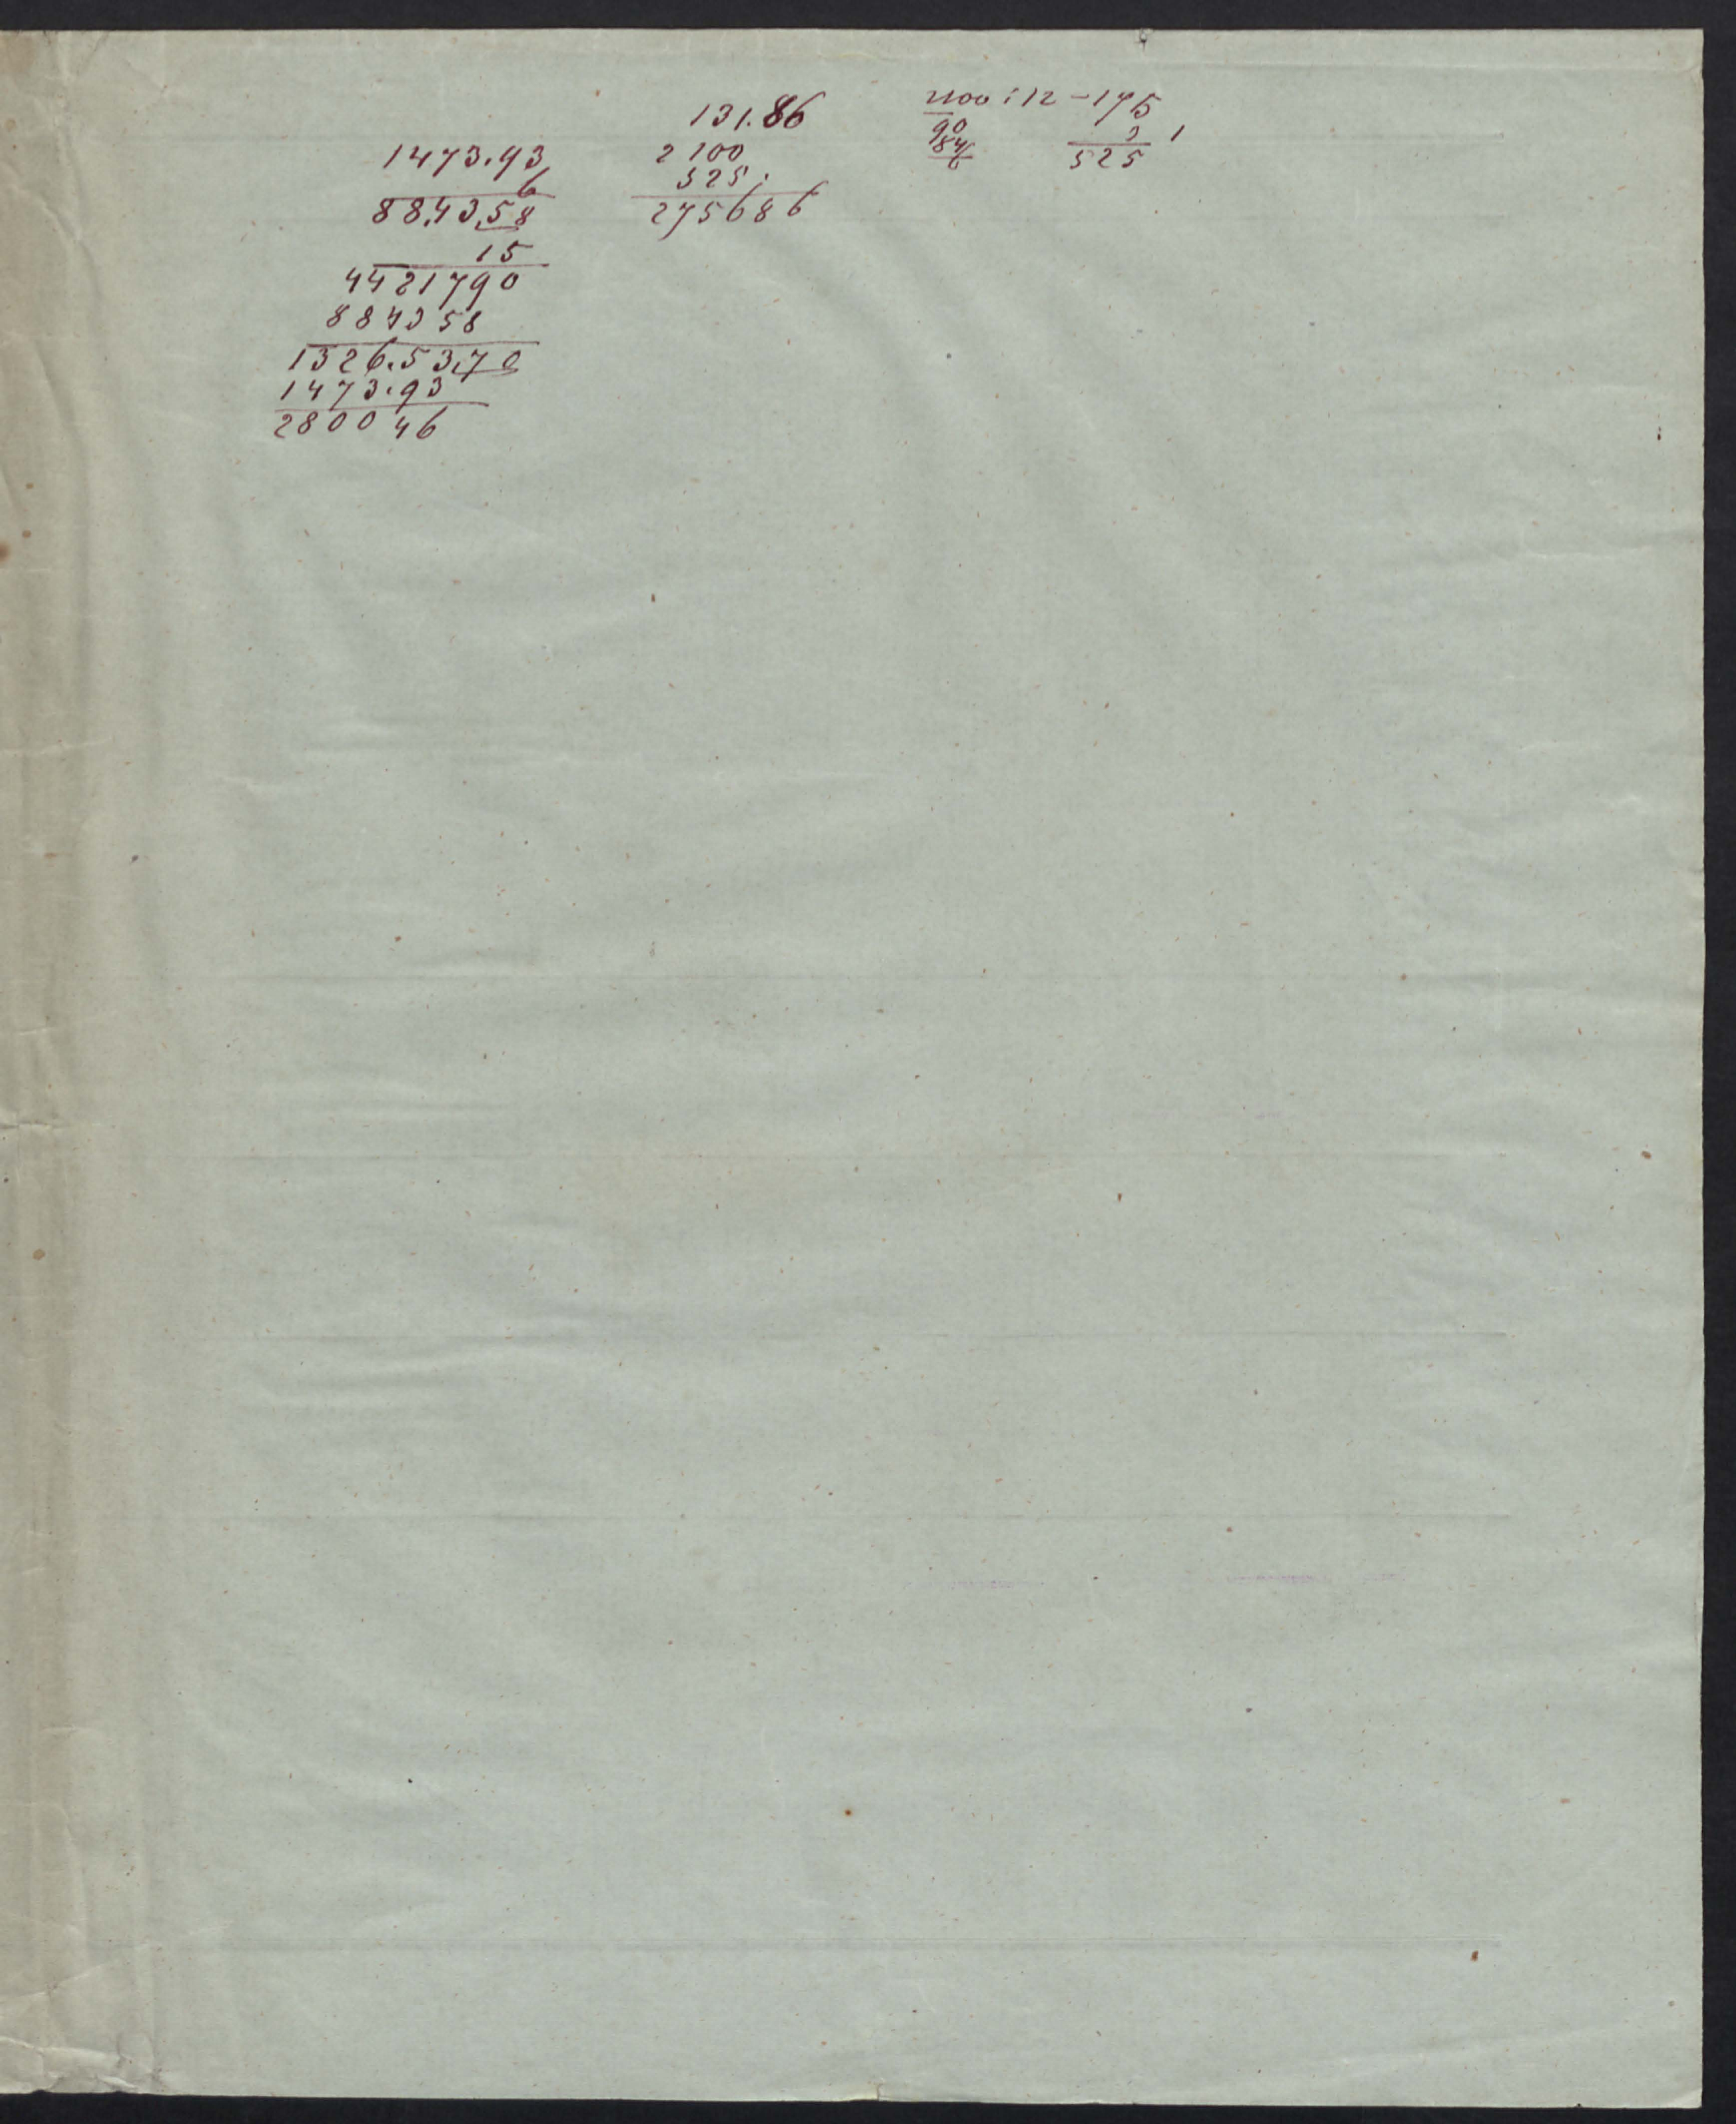 1473.93
6
88.43.58
15
4421790
884358
1326.53.70
1473.93
280046
131.86
2100
525.
275686
2100 : 12 - 175
90
84
6
3
525
1